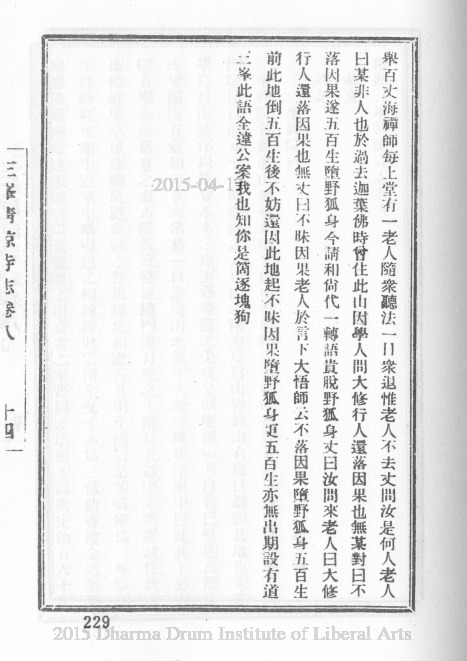 舉百丈海禪師每上堂有一老人隨衆聽法一日衆退惟老人不去丈問汝是何人老人
曰某非人也於過去迦葉佛時曾住此山因學人問大修行人還落因果也無某對曰不
落因果遂五百生墮野狐身今請和尙代一轉語貴脫野狐身丈曰汝問來老人曰大修
行人還落因果也無丈曰不昧因果老人於言下大悟師云不落因果墮野狐身五百生
前此地倒五百生後不妨還因此地起不昧因果墮野狐身更五百生亦無出期設有道
三峯此語全違公案我也知你是箇逐塊狗
三峯清涼寺志卷八
十四
2015-04-1
229
2015 Dharma Drum Institute of Liberal Arts